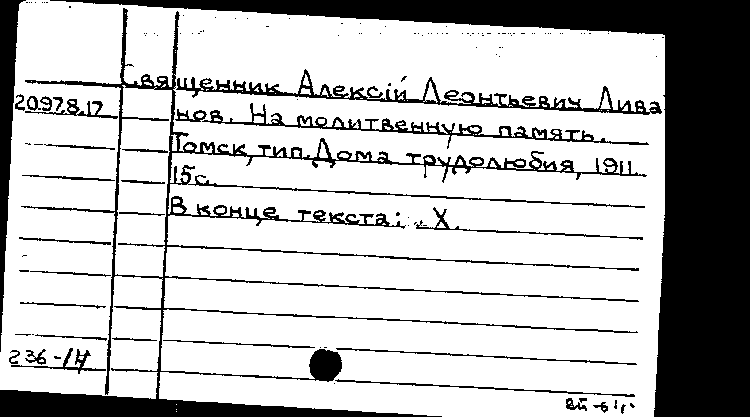 Священник Алексiй Леонтьевич Лива
20978.17
нов. На молитвенную память.
Томск, тип. Дома трудолюбия, 1911.
15с.
В конце текста: „Х.
236-14